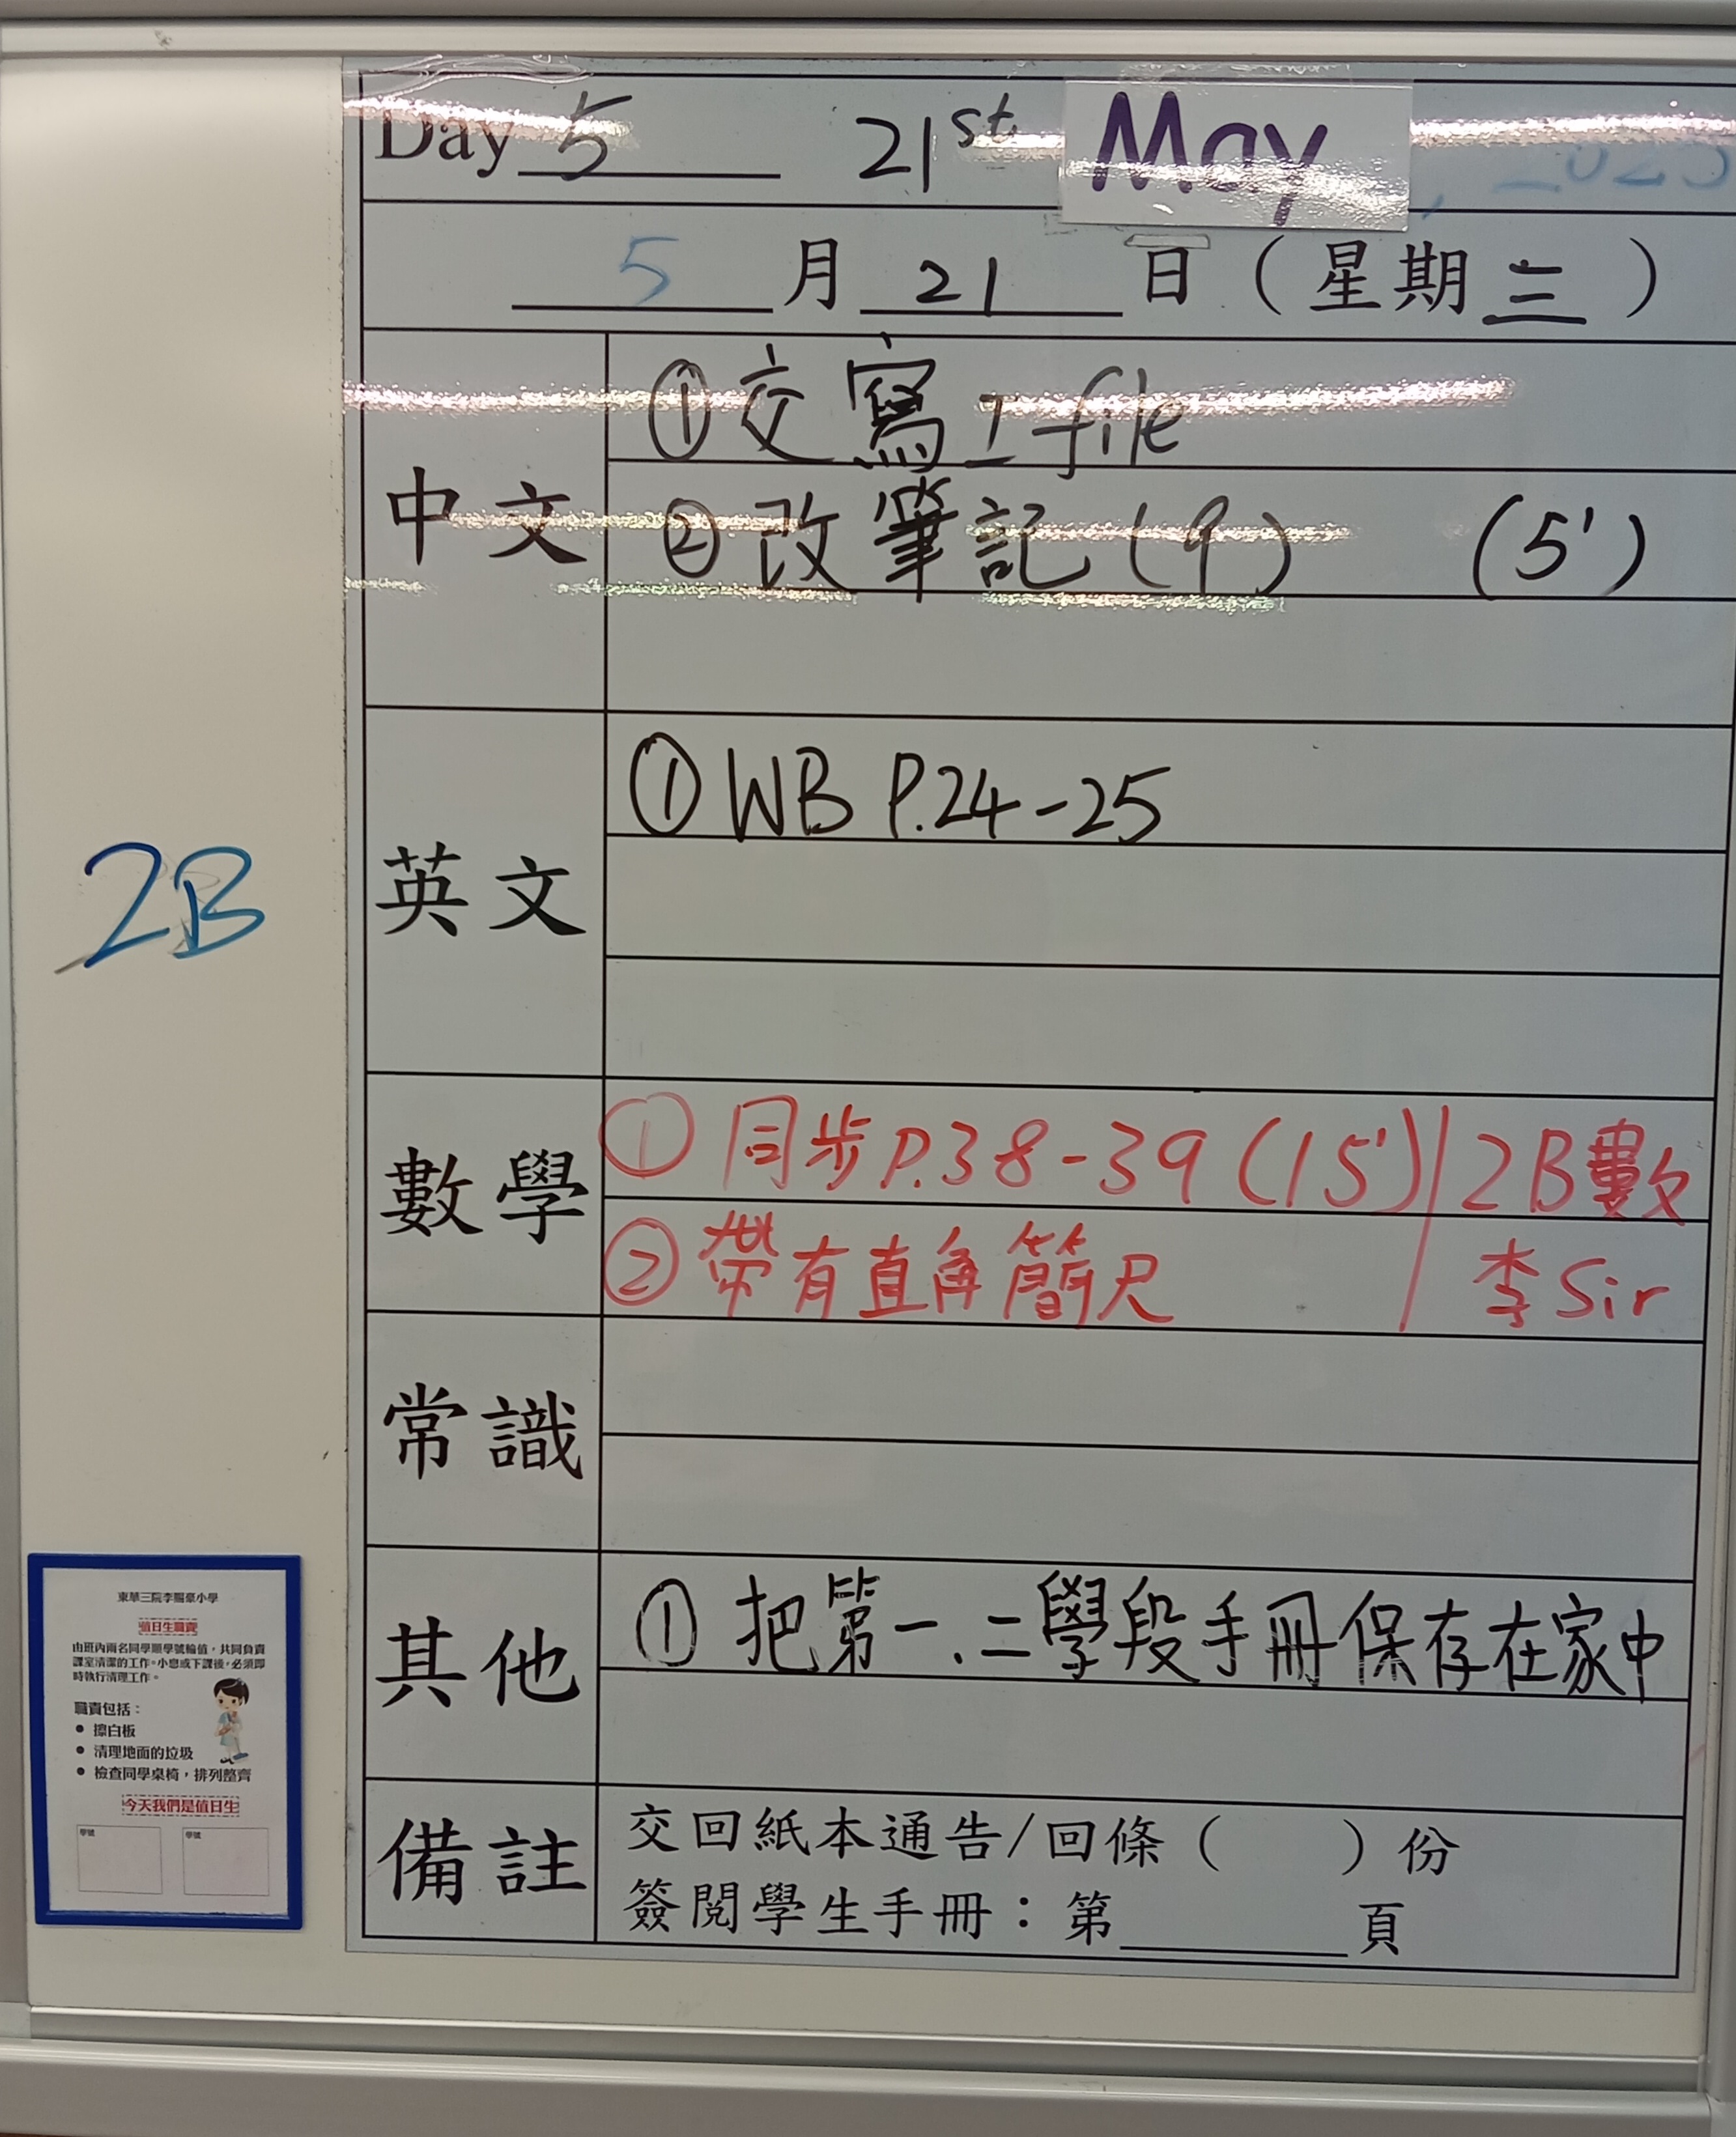 Day 5 21st May, 2025
5 月 21 日（星期三）
中文
①交寫工file
②改筆記(9) (5')
英文
① WB P.24-25
2B
數學
① 同步P.38-39 (15') 2B數
② 帶有直角間尺 李Sir
常識
其他
① 把第一、二學段手冊保存在家中
備註
交回紙本通告/回條（ ）份
簽閱學生手冊：第______頁
東華三院李賜豪小學
值日生職責
由班內兩名同學順學號輪值，共同負責
課室清潔的工作。小息或下課後，必須即
時執行清理工作。
職責包括：
● 擦白板
● 清理地面的垃圾
● 檢查同學桌椅，排列整齊
今天我們是值日生
學號 學號